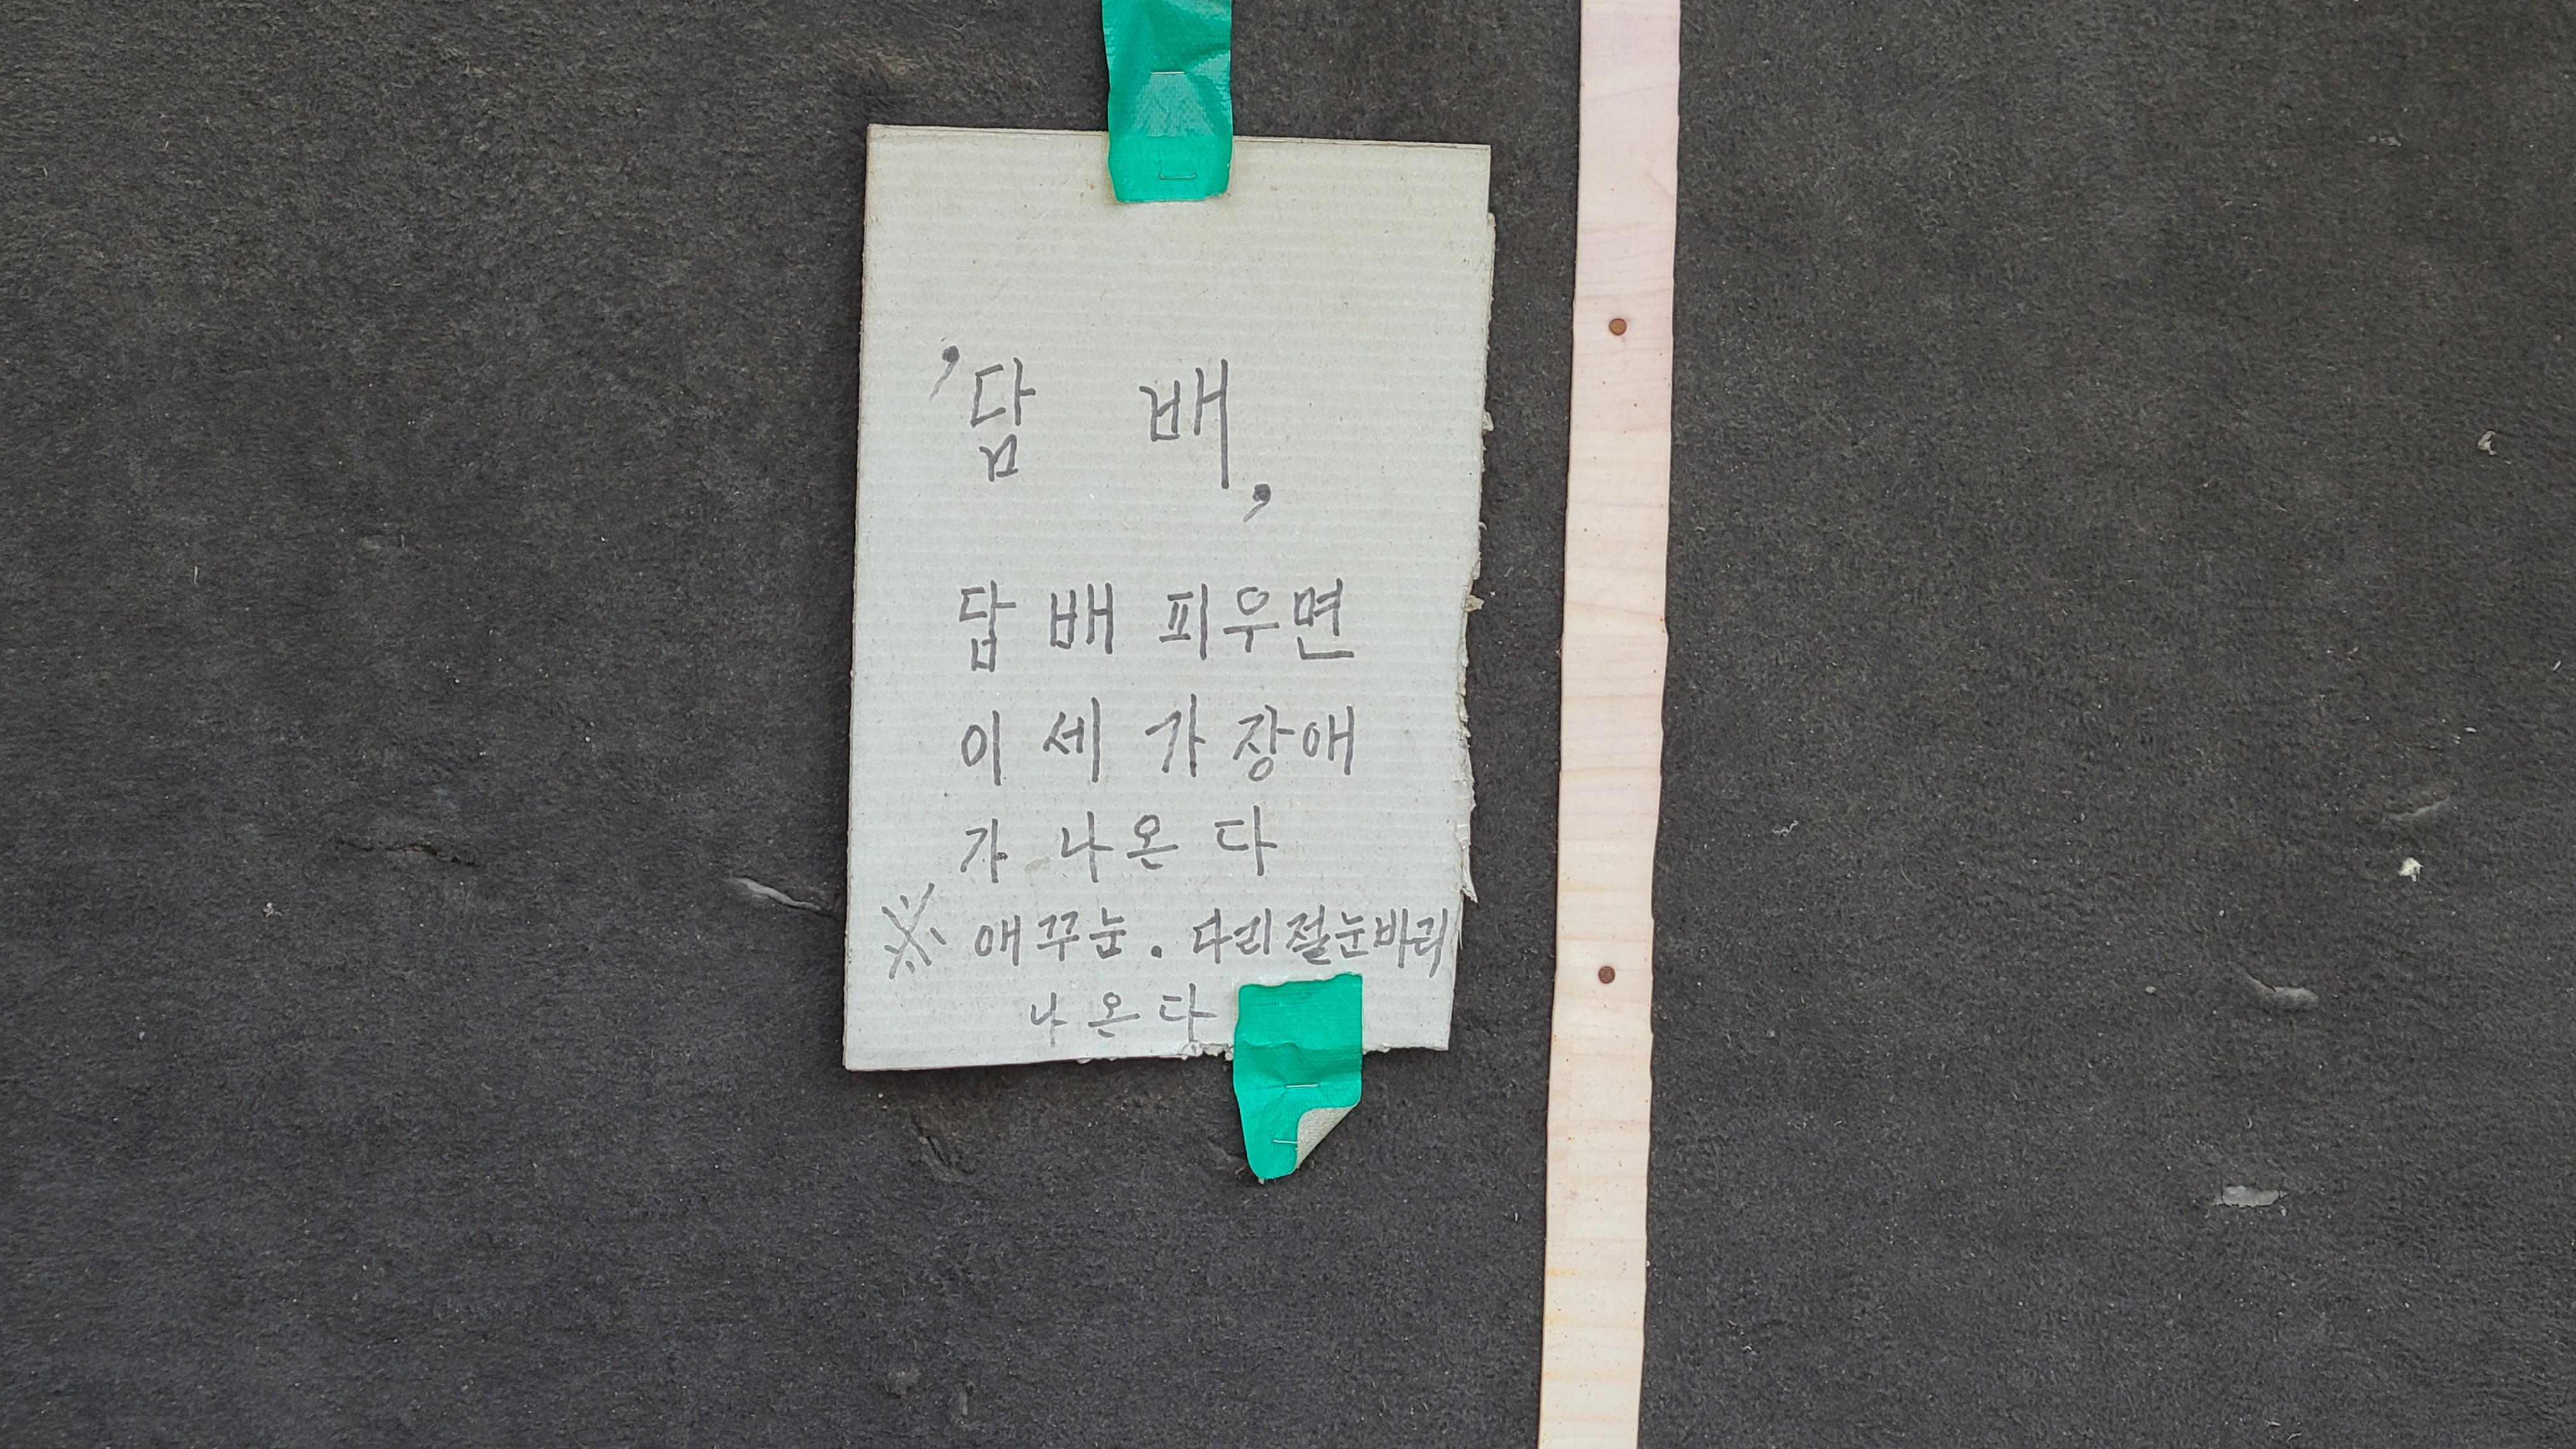 ’담 배,
답 배 피우면
이 세 가 장애
가 나온 다
※ 애꾸눔. 다리절눈바리
나 온 다